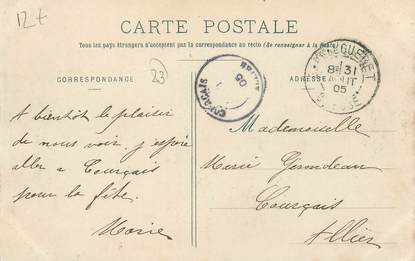 12+
CARTE POSTALE
Tous les pays étrangers n'acceptent pas la correspondance au recto (Se renseigner à la poste)
CORRESPONDANCE
23
ADRESSE
COURÇAIS
05
8 31
05
CREUSE
A bientôt le plaisir
de nous voir, j'espère
aller a Courçais
pour la fête.
Marie
Mademoiselle
Marie
Courçais
Allier